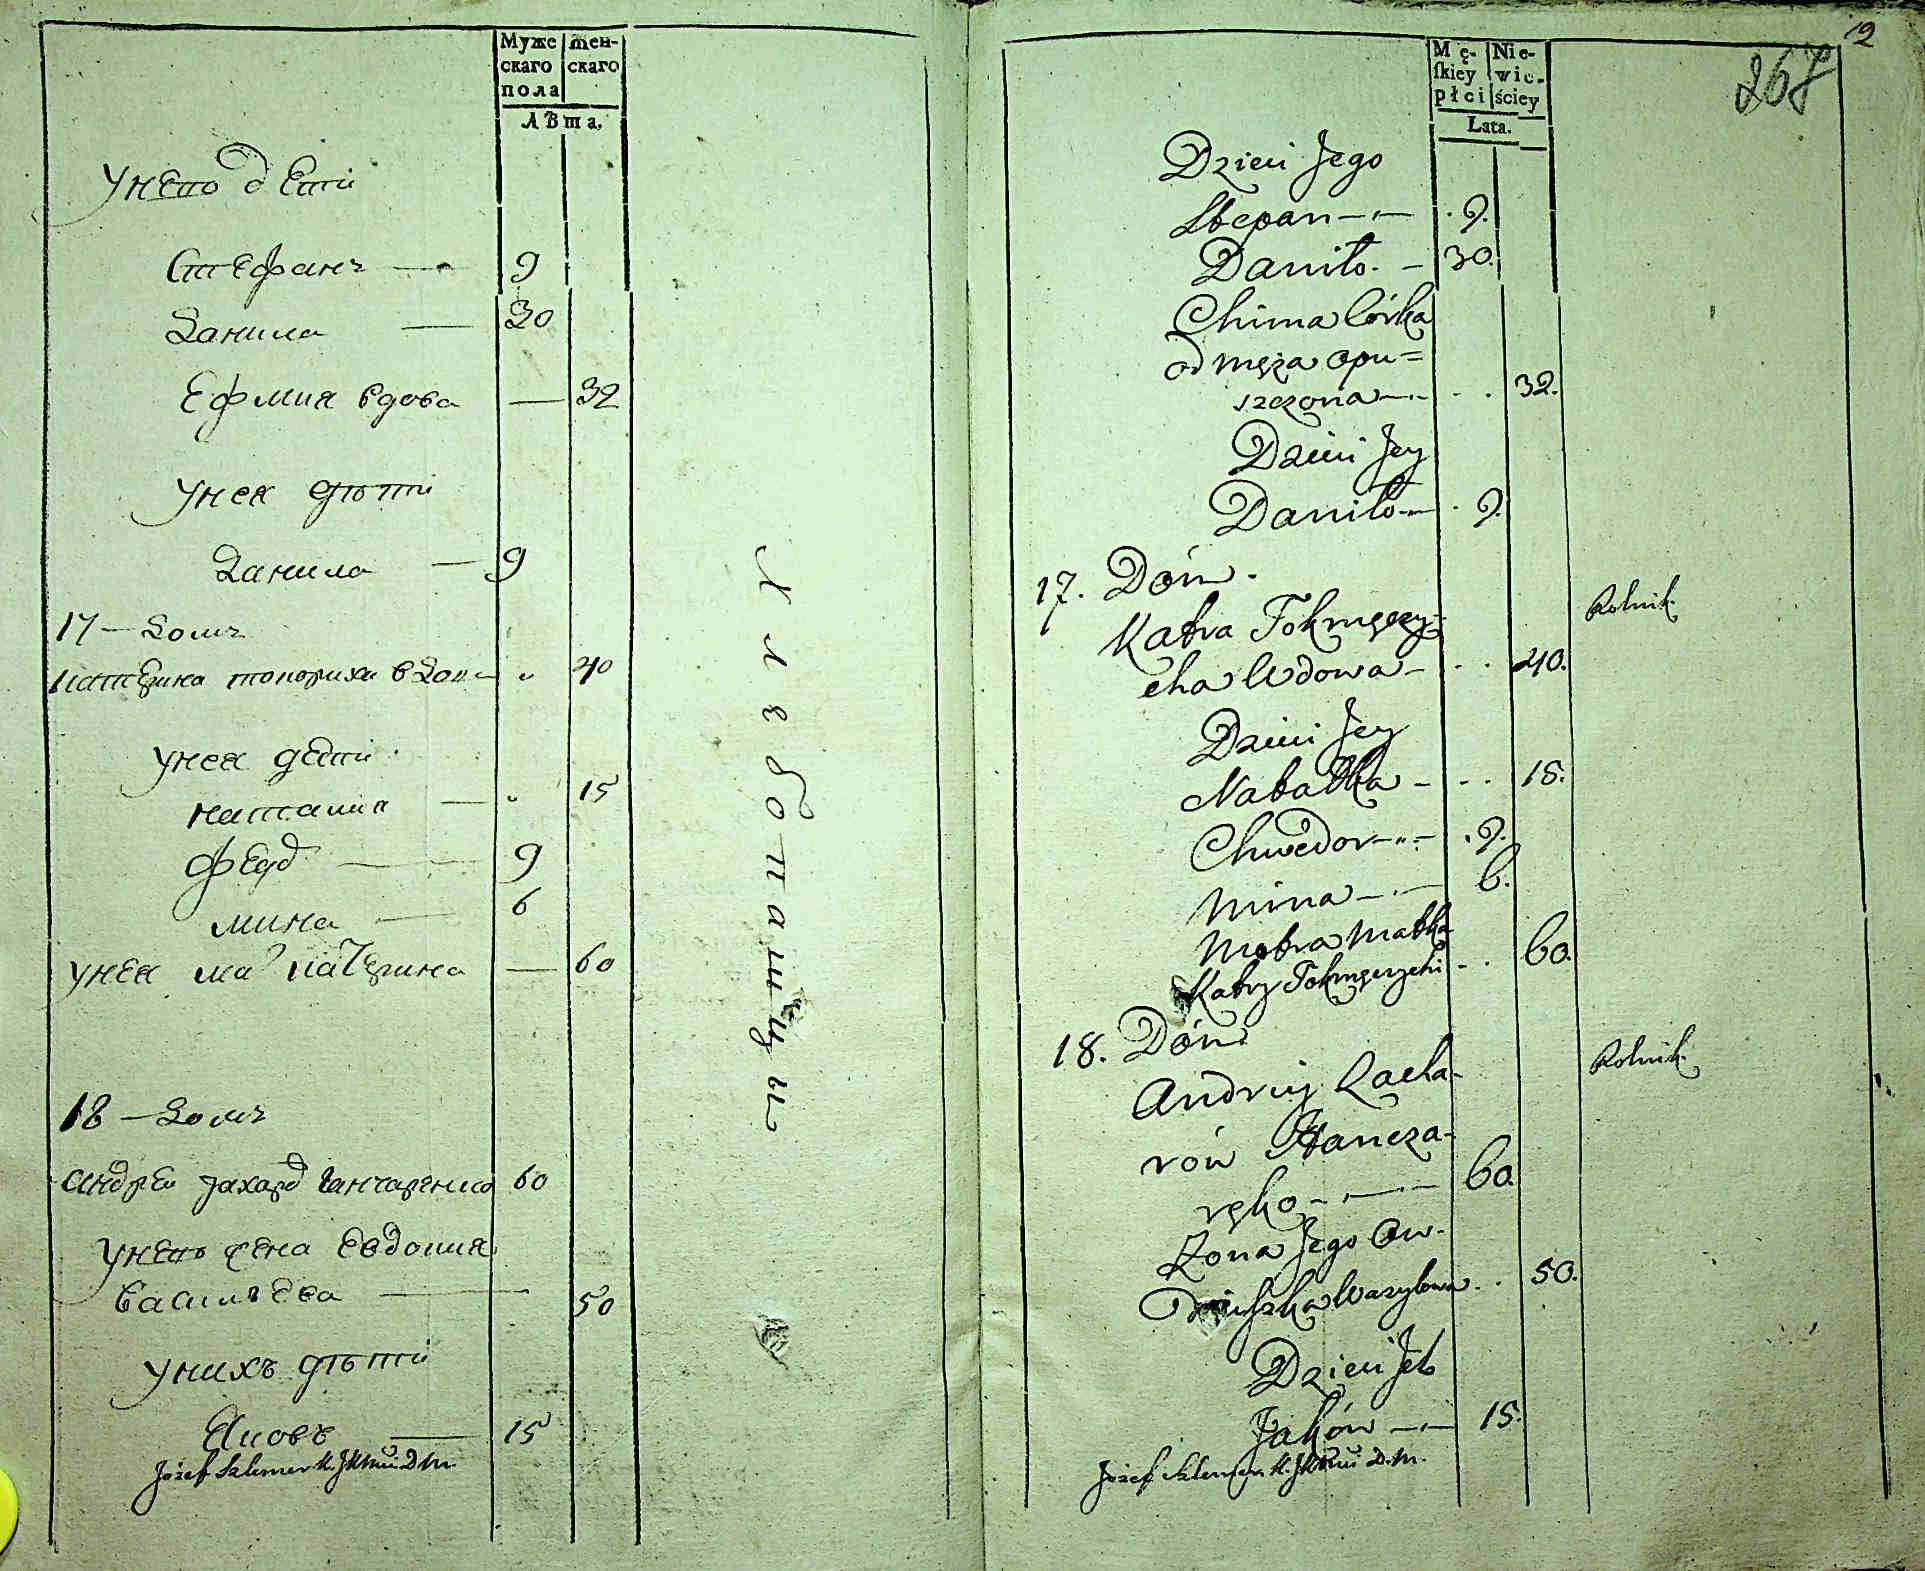 Муже
скаго
пола
жен-
скаго
Лѣта.
у него дети
Стефанъ — 9
Данила — 30
Ефмия вдова — 32
у нея дѣти
Данила — 9
17 — Домъ
Катерина вдова 40
у нея дети
Наталия — 15
Феѡд — 9
Мина — 6
у нея ма Катерина — 60
18 — Домъ
Андрей Захаро Ганчаренко 60
у него жена Евдокия
Василиева — 50
у нихъ дѣти
Яковъ — 15
Józef Szlemer
Хлебопашцы
12
267
Mę-
skiey
płci
Nie-
wie-
ściey
Lata.
Dzieci Jego
Stepan — 9.
Daniło. — 30.
Chima Córka
od męża opu=
szczona — 32.
Dzieci Jey
Daniło — 9.
17. Dóm.
Rolnik.
Katra Tokmęczy=
cha Wdowa — 40.
Dzieci Jey
Natałka — 15.
Chwedor — 9.
Mina — 6.
Motra Matka
Katry Tokmęczychi — 60.
18. Dóm
Rolnik.
Andriy Zacha-
rów Hancza-
ręko — 60.
Żona Jego Ow-
Wazylowa — 50.
Dzieci Ich
Jaków — 15.
Józef Szlemer